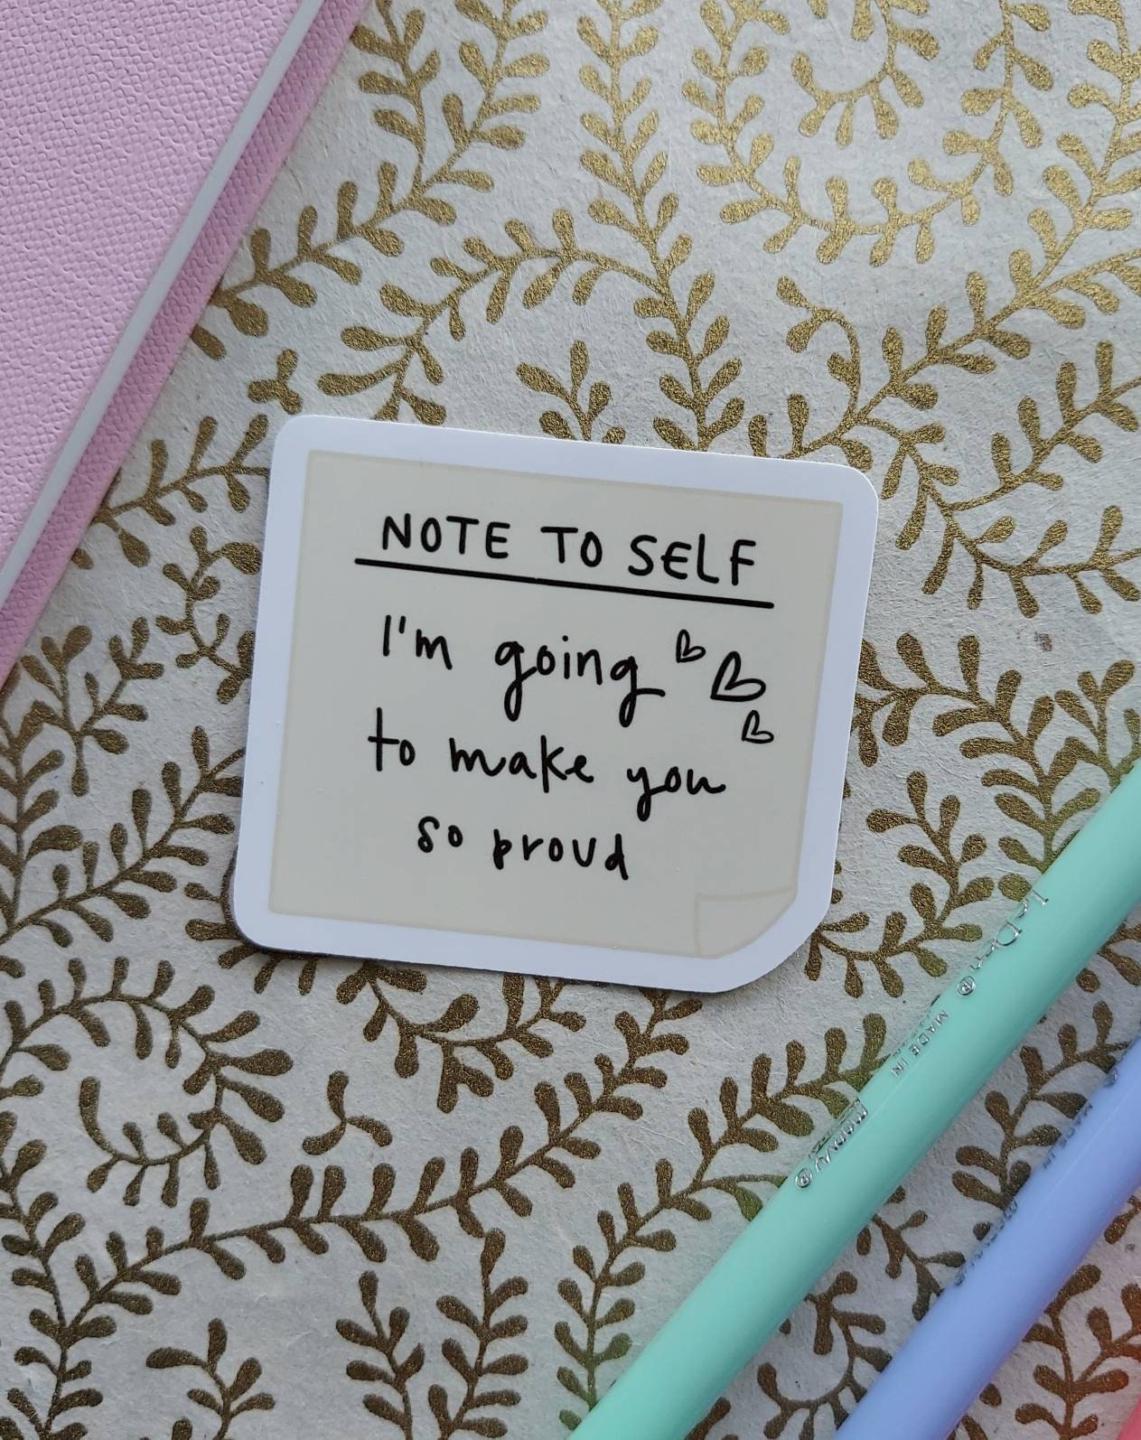 NOTE TO SELF
I'm going
to make you
so proud
Le Pen®
MADE IN